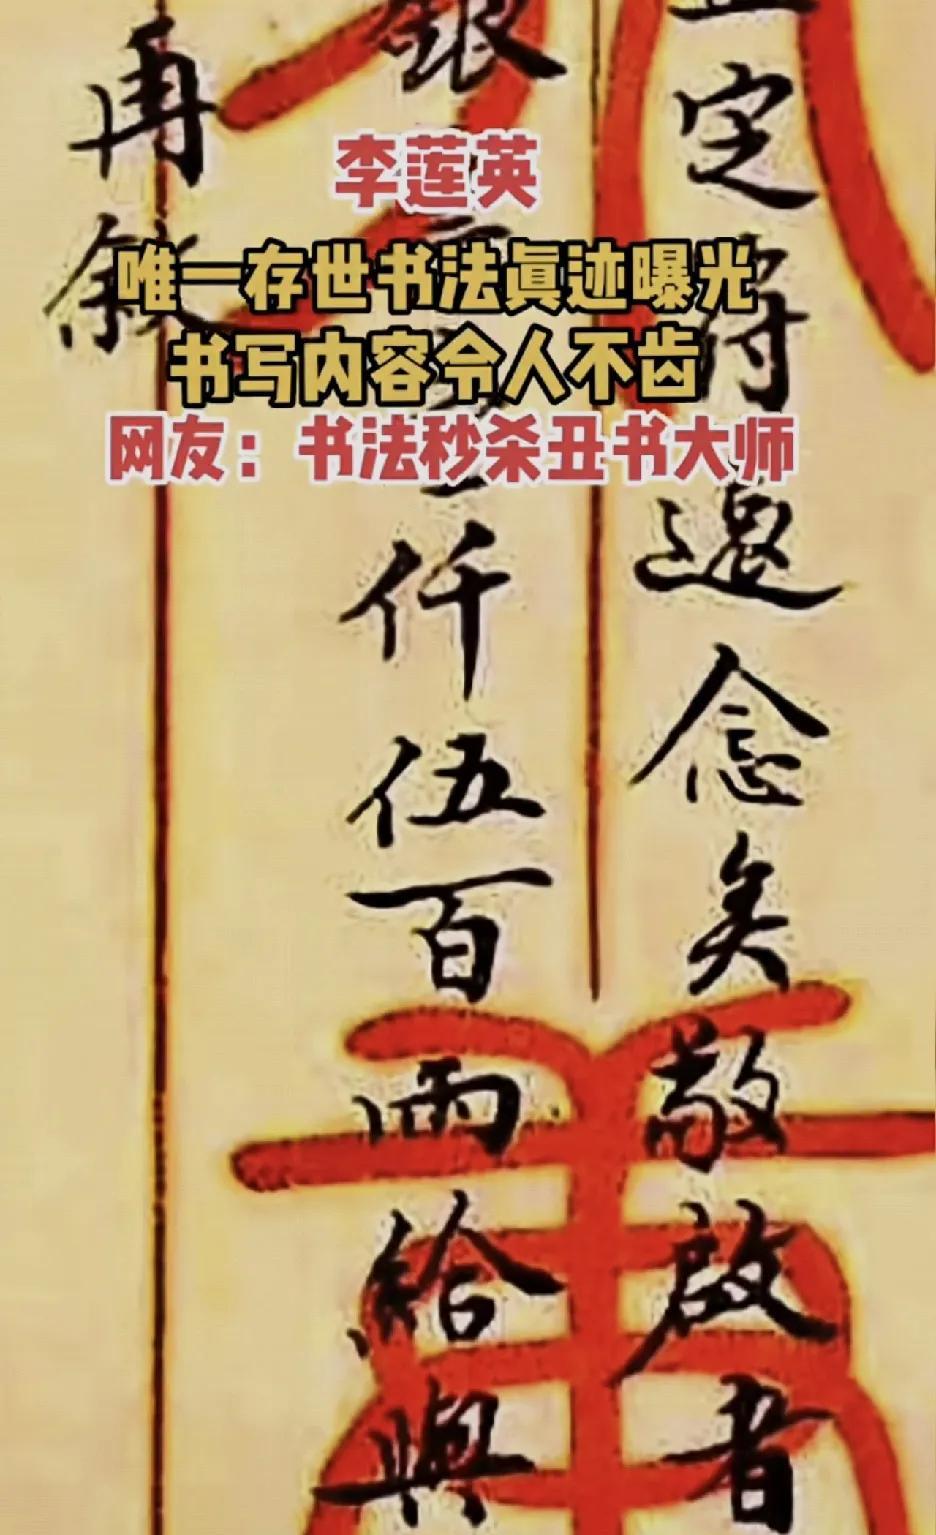 李莲英
唯一存世书法眞迹曝光
书写内容令人不齿
网友：书法秒杀丑书大师
定念矣敬啟者
銀仟伍百兩給與
再敘